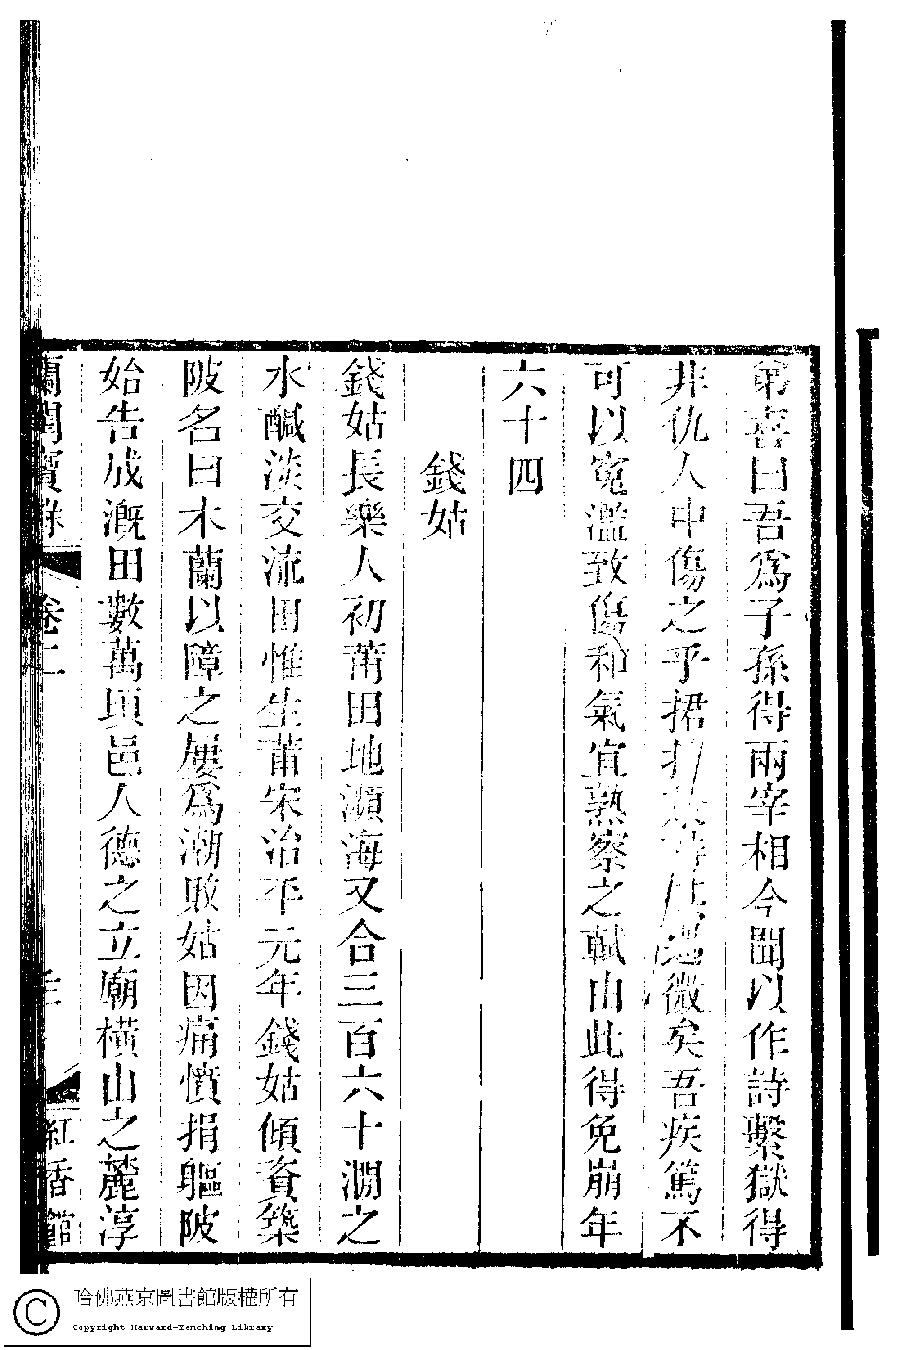 第喜曰吾爲子孫得兩宰相今聞以作詩繫獄得
非仇人中傷之乎捃過微矣吾疾篤不
可以寃濫致傷和氣宜熟察之軾由此得免崩年
六十四
錢姑
錢姑長樂人初莆田地瀕海又合三百六十澗之
水鹹淡交流田惟生莆宋治平元年錢姑傾資築
陂名曰木蘭以障之屢爲潮敗姑因痛憤捐軀陂
始告成溉田數萬頃邑人德之立廟橫山之麓淳
蘭閨寶錄 卷二 紅香館
哈佛燕京圖書館版權所有
Copyright Harvard-Yenching Library